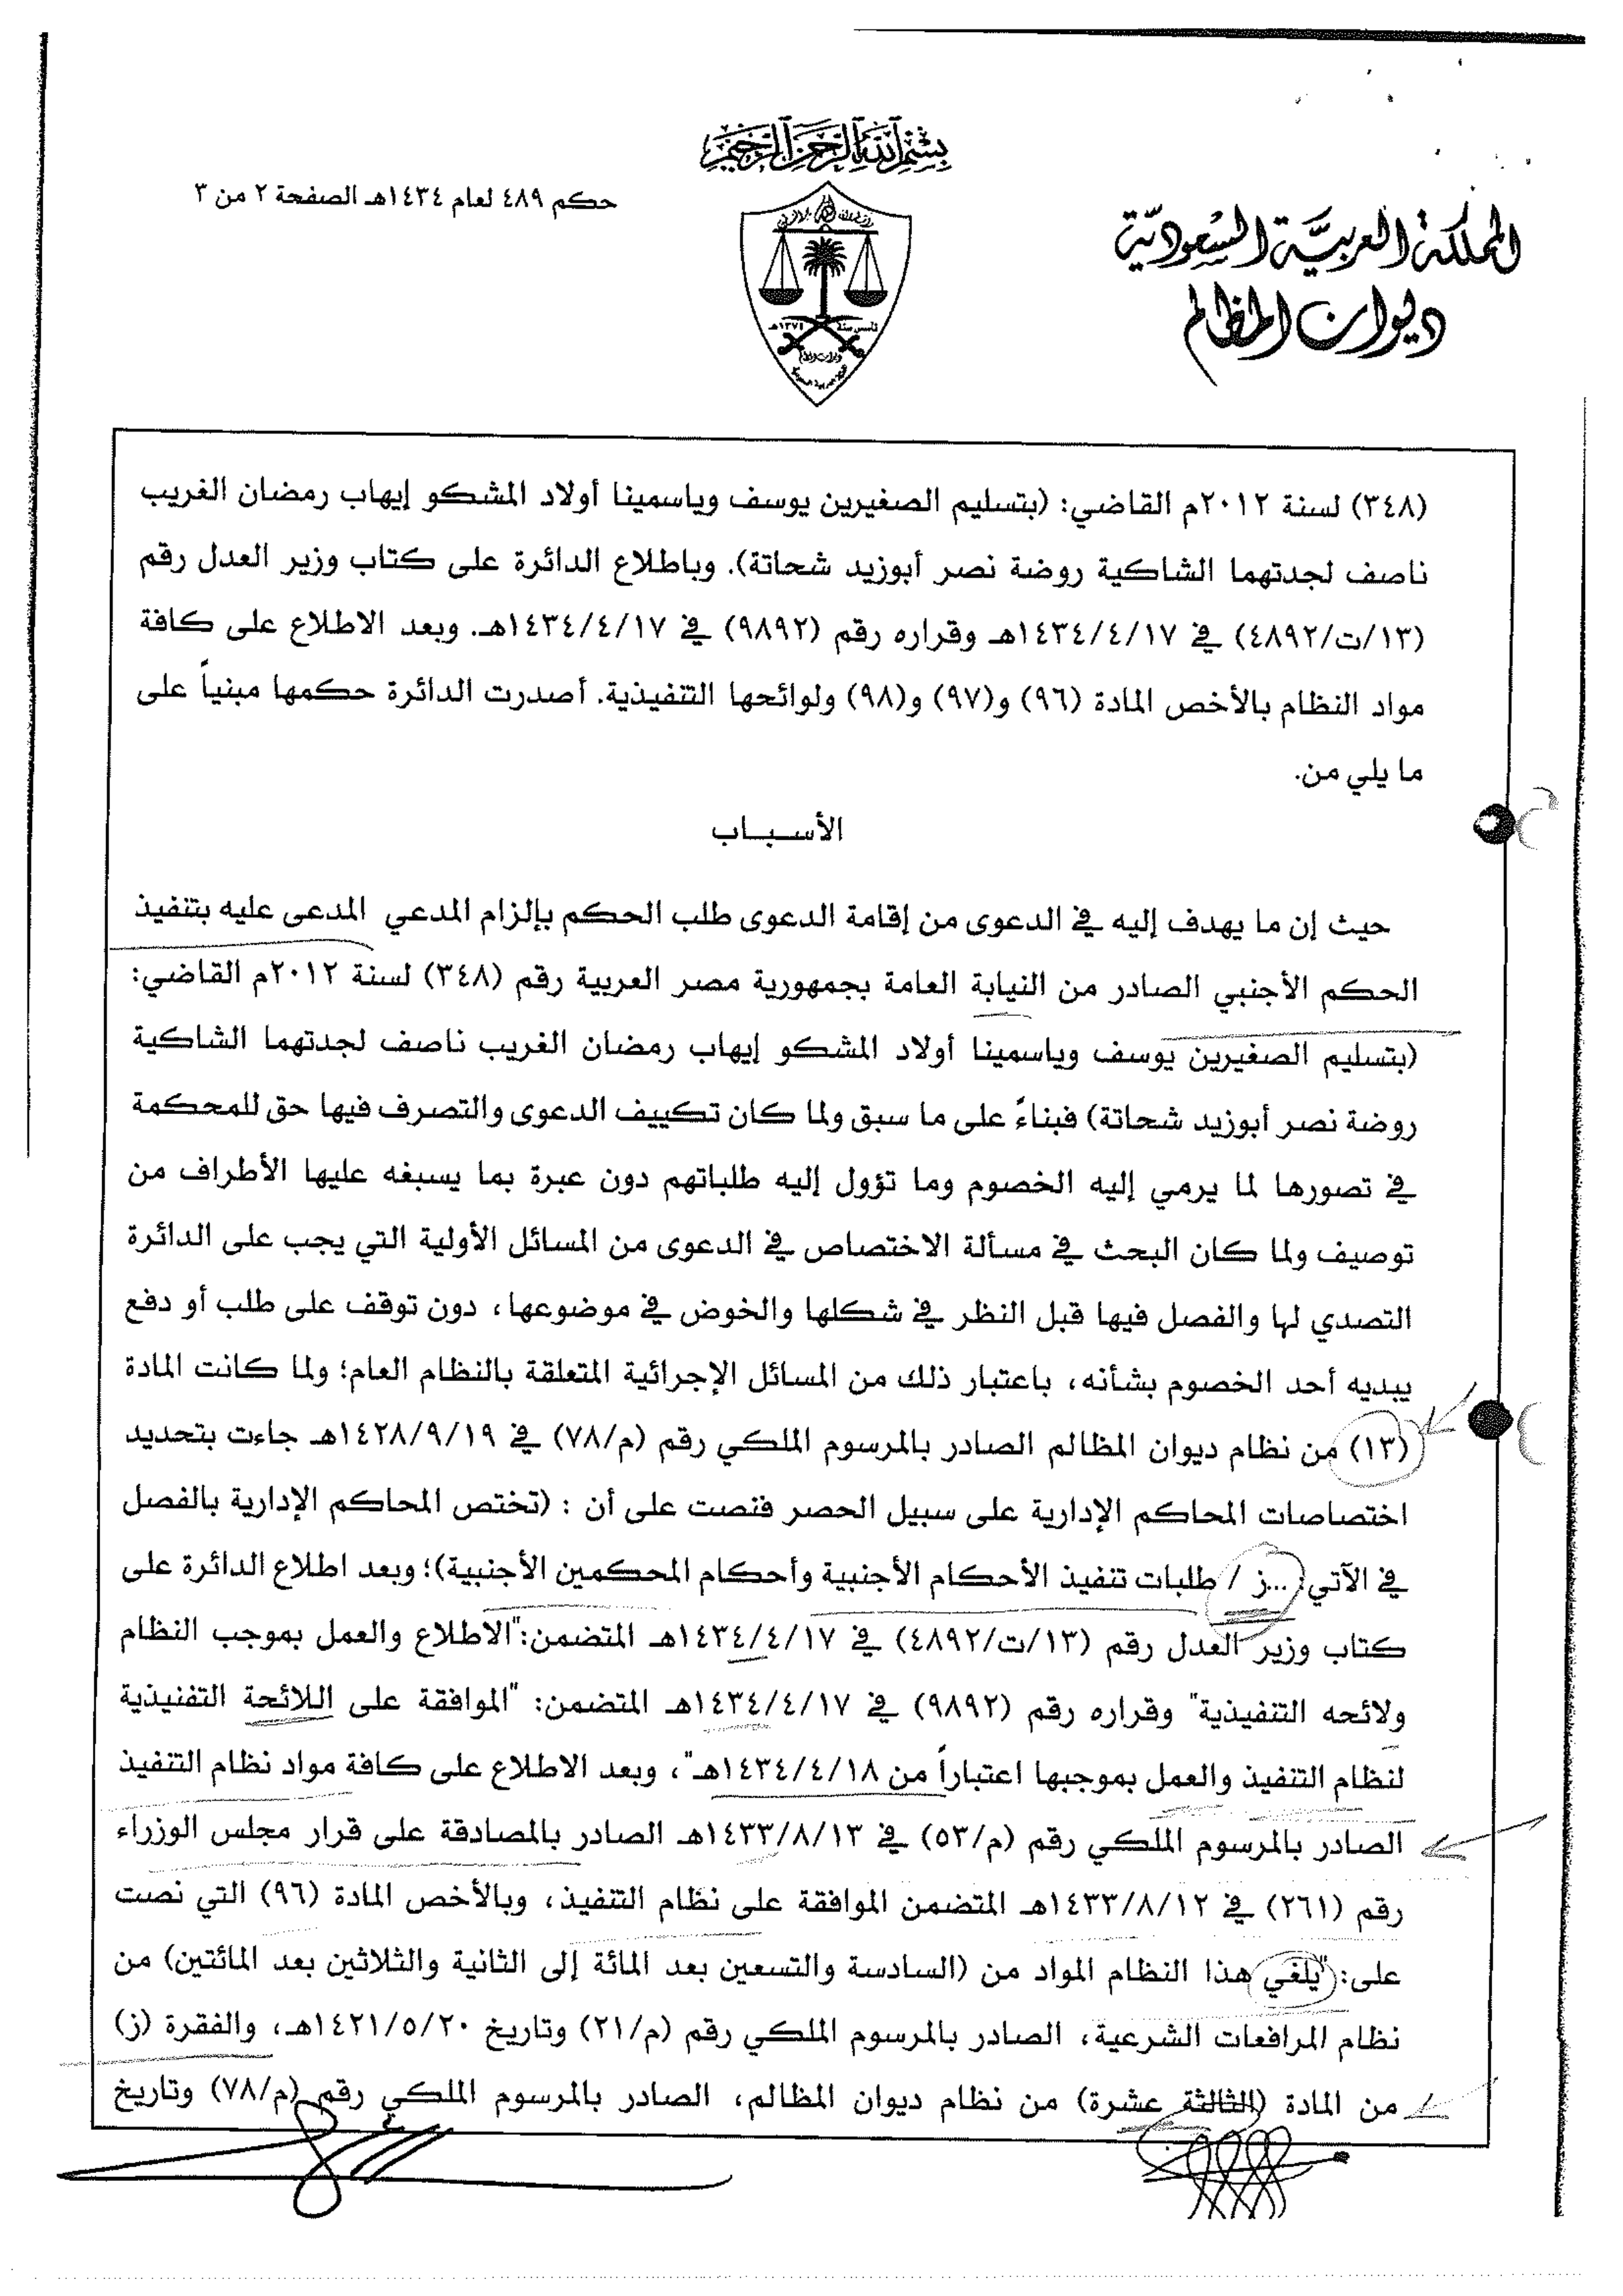 بسم الله الرحمن الرحيم
المملكة العربية السعودية
ديوان المظالم
حكم ٤٨٩ لعام ١٤٣٤هـ الصفحة ٢ من ٣
تأسس سنة ١٣٧٤هـ
ديوان المظالم
(٣٤٨) لسنة ٢٠١٢م القاضي: (بتسليم الصغيرين يوسف وياسمينا أولاد المشكو إيهاب رمضان الغريب
ناصف لجدتهما الشاكية روضة نصر أبوزيد شحاتة). وباطلاع الدائرة على كتاب وزير العدل رقم
(١٣/ت/٤٨٩٢) في ١٤٣٤/٤/١٧هـ وقراره رقم (٩٨٩٢) في ١٤٣٤/٤/١٧هـ. وبعد الاطلاع على كافة
مواد النظام بالأخص المادة (٩٦) و(٩٧) و(٩٨) ولوائحها التنفيذية. أصدرت الدائرة حكمها مبنياً على
ما يلي من.
الأسبـاب
حيث إن ما يهدف إليه في الدعوى من إقامة الدعوى طلب الحكم بإلزام المدعي المدعى عليه بتنفيذ
الحكم الأجنبي الصادر من النيابة العامة بجمهورية مصر العربية رقم (٣٤٨) لسنة ٢٠١٢م القاضي:
(بتسليم الصغيرين يوسف وياسمينا أولاد المشكو إيهاب رمضان الغريب ناصف لجدتهما الشاكية
روضة نصر أبوزيد شحاتة) فبناءً على ما سبق ولما كان تكييف الدعوى والتصرف فيها حق للمحكمة
في تصورها لما يرمي إليه الخصوم وما تؤول إليه طلباتهم دون عبرة بما يسبغه عليها الأطراف من
توصيف ولما كان البحث في مسألة الاختصاص في الدعوى من المسائل الأولية التي يجب على الدائرة
التصدي لها والفصل فيها قبل النظر في شكلها والخوض في موضوعها، دون توقف على طلب أو دفع
يبديه أحد الخصوم بشأنه، باعتبار ذلك من المسائل الإجرائية المتعلقة بالنظام العام؛ ولما كانت المادة
(١٣) من نظام ديوان المظالم الصادر بالمرسوم الملكي رقم (م/٧٨) في ١٤٢٨/٩/١٩هـ جاءت بتحديد
اختصاصات المحاكم الإدارية على سبيل الحصر فنصت على أن : (تختص المحاكم الإدارية بالفصل
في الآتي: ...ز / طلبات تنفيذ الأحكام الأجنبية وأحكام المحكمين الأجنبية)؛ وبعد اطلاع الدائرة على
كتاب وزير العدل رقم (١٣/ت/٤٨٩٢) في ١٤٣٤/٤/١٧هـ المتضمن:"الاطلاع والعمل بموجب النظام
ولائحه التنفيذية" وقراره رقم (٩٨٩٢) في ١٤٣٤/٤/١٧هـ المتضمن: "الموافقة على اللائحة التفنيذية
لنظام التنفيذ والعمل بموجبها اعتباراً من ١٤٣٤/٤/١٨هـ"، وبعد الاطلاع على كافة مواد نظام التنفيذ
الصادر بالمرسوم الملكي رقم (م/٥٣) في ١٤٣٣/٨/١٣هـ الصادر بالمصادقة على قرار مجلس الوزراء
رقم (٢٦١) في ١٤٣٣/٨/١٢هـ المتضمن الموافقة على نظام التنفيذ، وبالأخص المادة (٩٦) التي نصت
على: "يلغي هذا النظام المواد من (السادسة والتسعين بعد المائة إلى الثانية والثلاثين بعد المائتين) من
نظام المرافعات الشرعية، الصادر بالمرسوم الملكي رقم (م/٢١) وتاريخ ١٤٢١/٥/٢٠هـ، والفقرة (ز)
من المادة (الثالثة عشرة) من نظام ديوان المظالم، الصادر بالمرسوم الملكي رقم (م/٧٨) وتاريخ